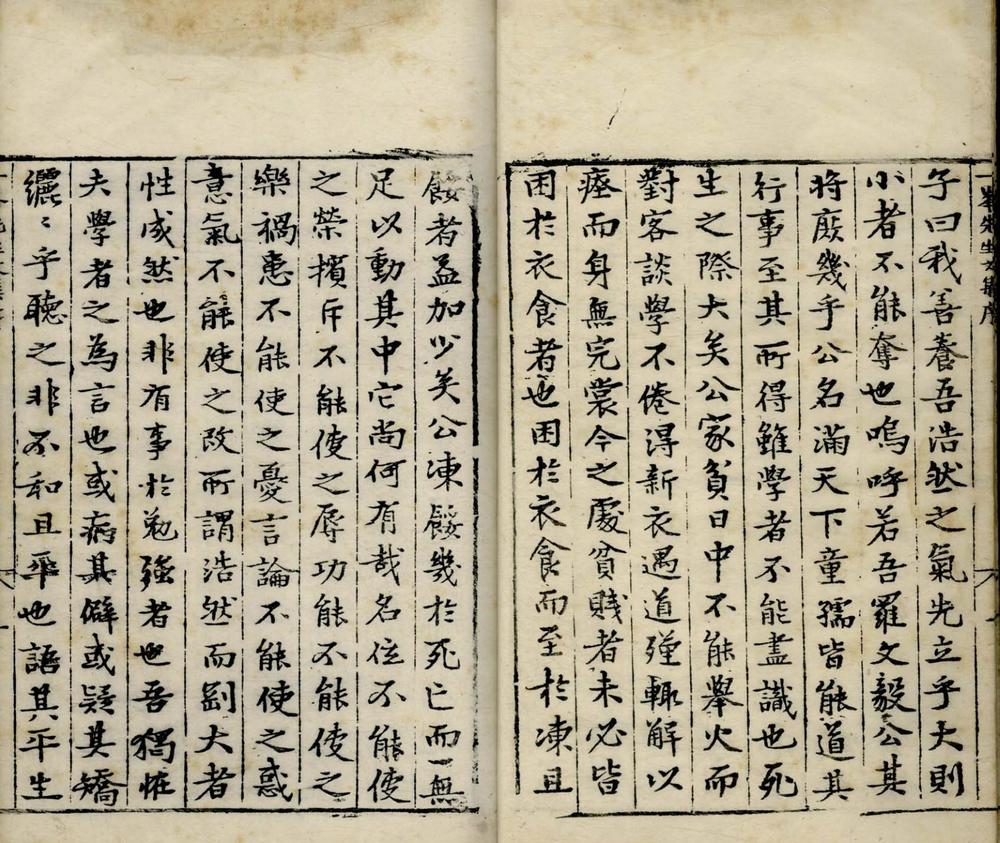 一峯先生文集序
子曰我善養吾浩然之氣先立乎大則
小者不能奪也嗚呼若吾羅文毅公其
將庶幾乎公名滿天下童孺皆能道其
行事至其所得雖學者不能盡識也死
生之際大矣公家貧日中不能舉火而
對客談學不倦淂新衣遇道殣輒解以
瘞而身無完裳今之處貧賤者未必皆
困於衣食者也困於衣食而至於凍且
餒者益加少矣公凍餒幾於死亡而一無
足以動其中它尚何有哉名位不能使
之榮擯斥不能使之辱功能不能使之
樂禍患不能使之憂言論不能使之惑
意氣不能使之改所謂浩然而剛大者
性成然也非有事於勉强者也吾獨恠
夫學者之為言也或病其僻或疑其矯
纚〻乎聽之非不和且平也語其平生